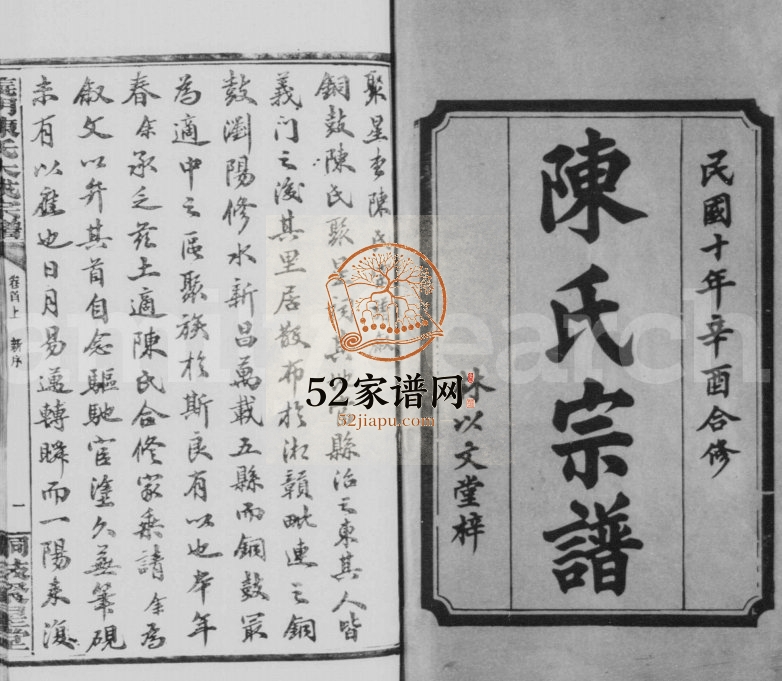 民國十年辛酉合修
陳氏宗譜
以文堂梓
聚星堂陳氏
銅鼓陳氏聚星祠縣治之東其人皆
義门之後其里居散布於湘贛毗連之銅
鼓瀏陽修水新昌萬載五縣而銅鼓最
為適中之區聚族於斯良有以也本年
春余承乏茲土適陳氏合修家乘請余為
叙文以弁其首自念驅馳宦塗久蕪筆硯
未有以應也日月易邁轉瞬而一陽來復
義門陳氏大成宗譜
卷首上
新序
一
52家谱网
52jiapu.com